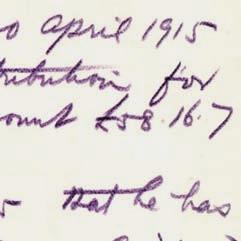 o April 1915
tribution for
ount £58.16.7
s that he has